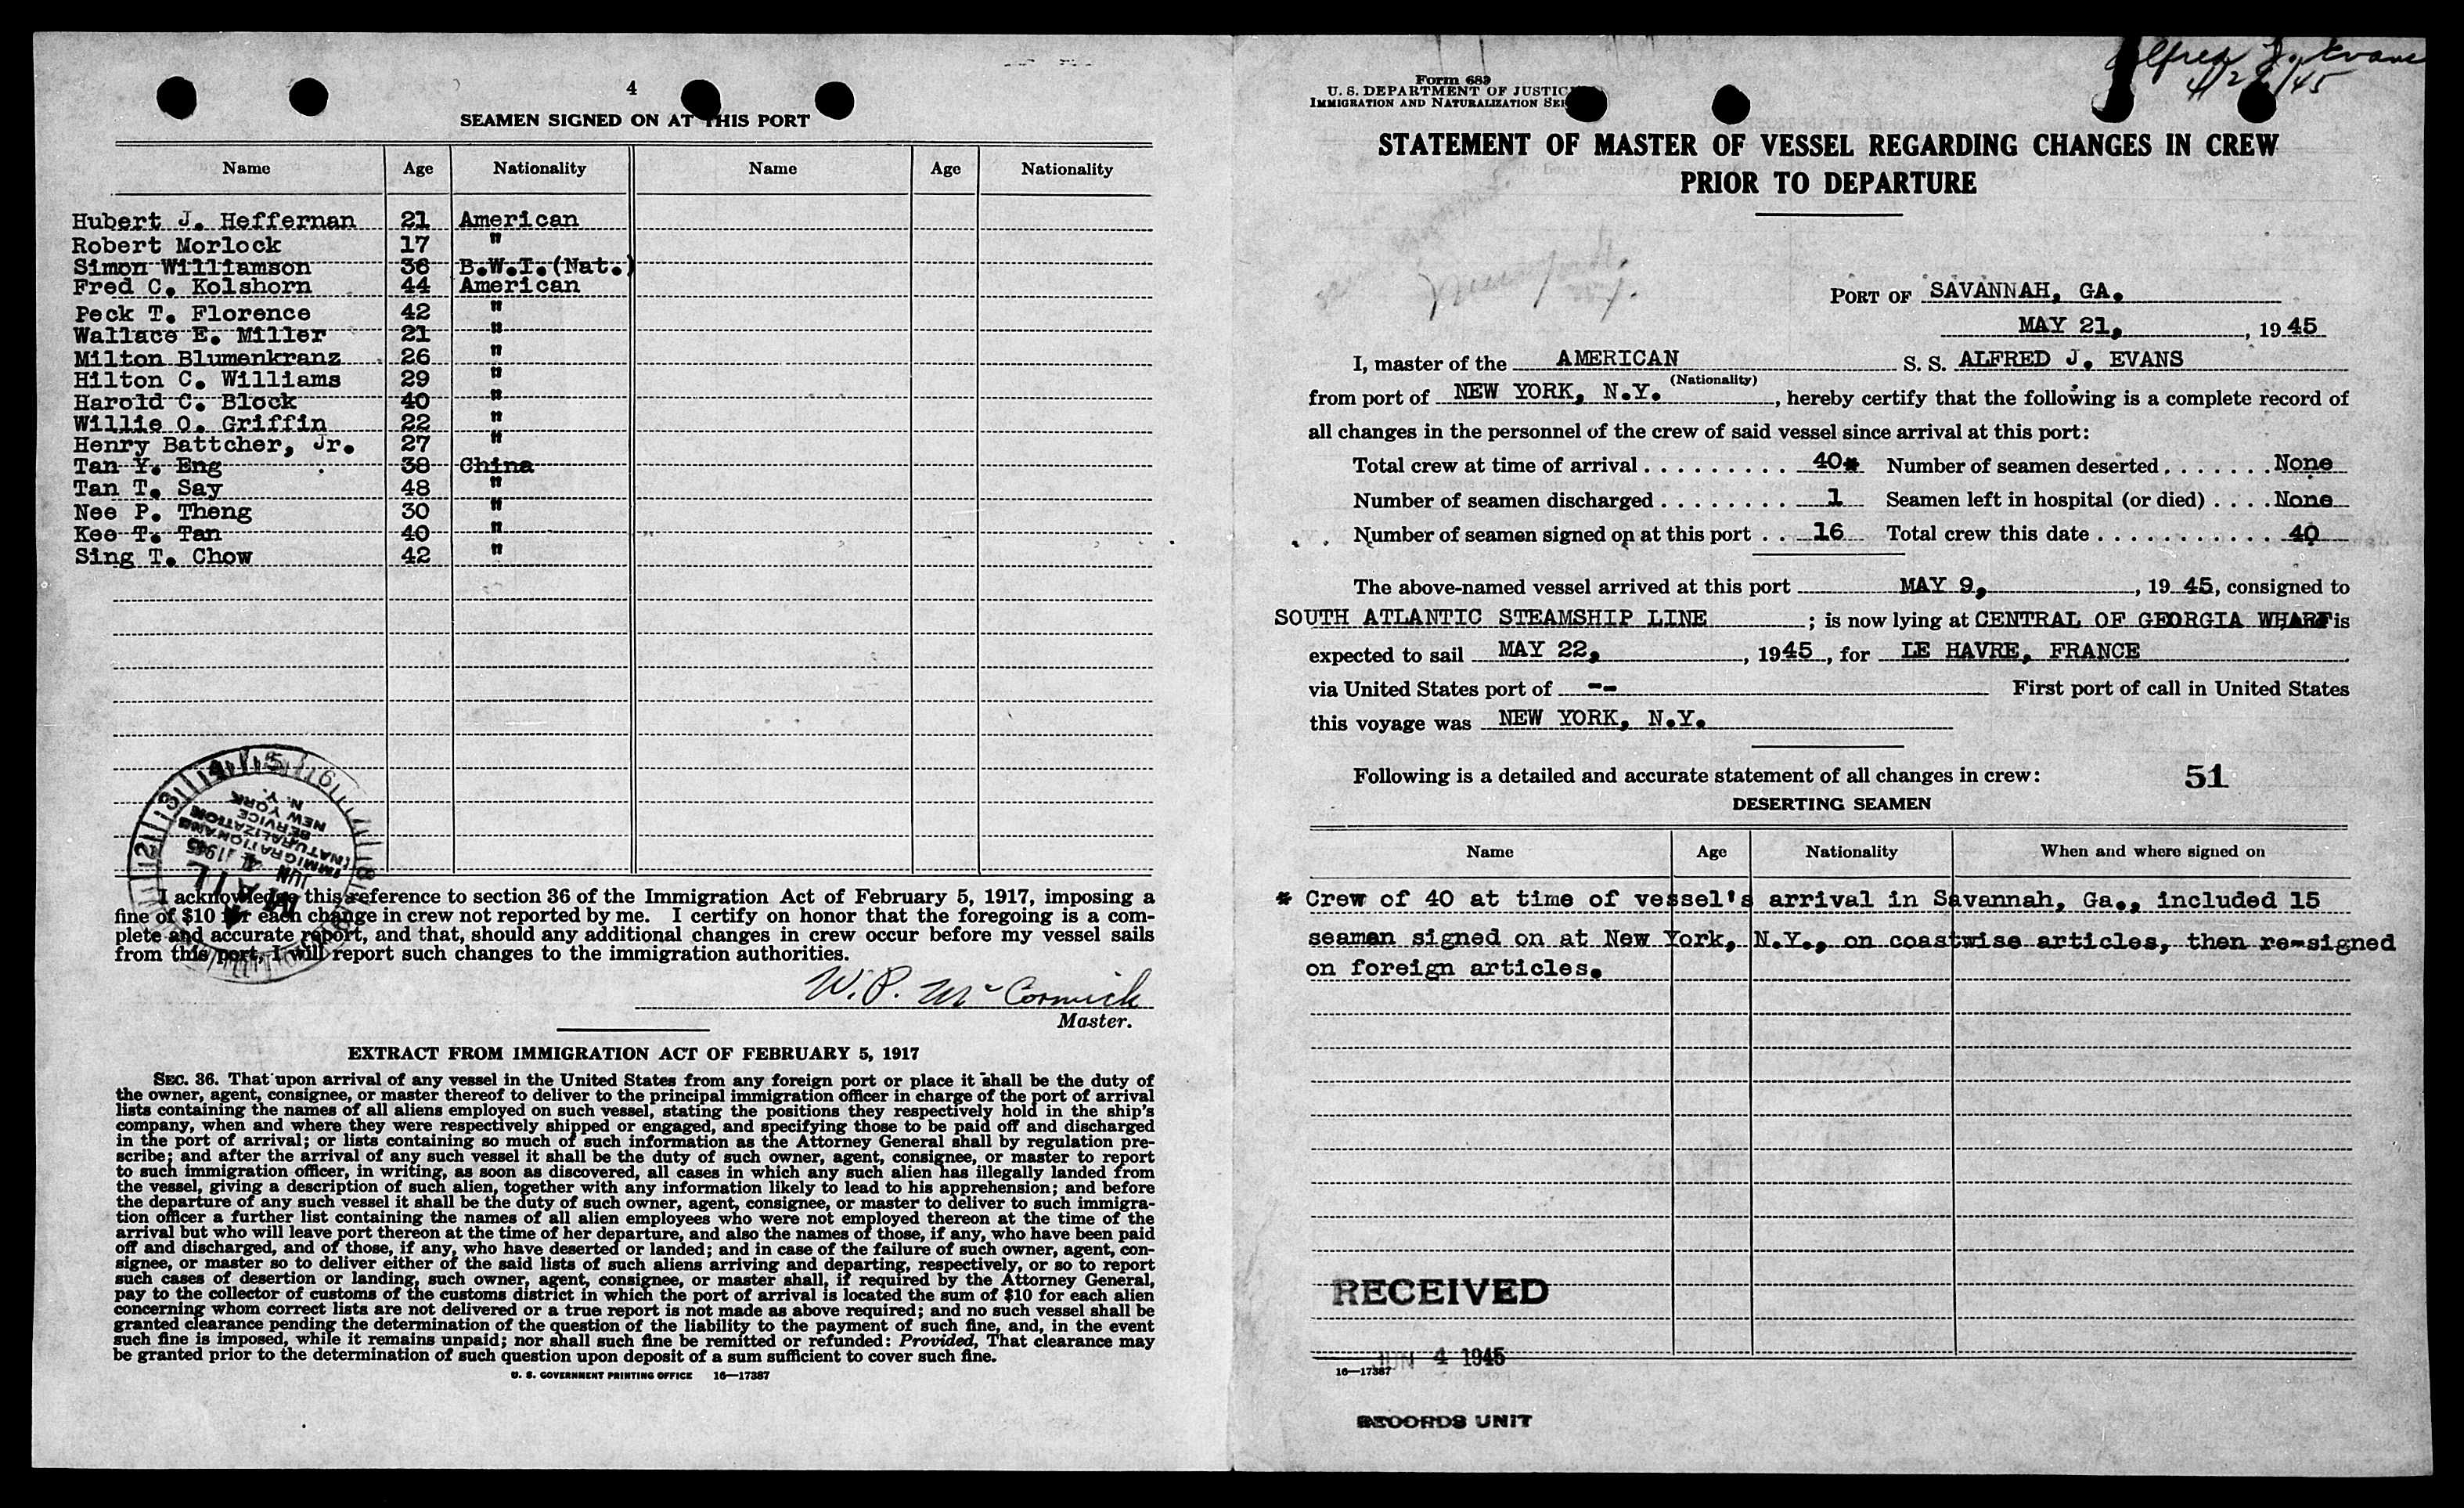 4
SEAMEN SIGNED ON AT THIS PORT
Name Age Nationality Name Age Nationality
Hubert J. Heffernan 21 American
Robert Morlock 17 "
Simon Williamson 36 B.W.I.(Nat.)
Fred C. Kolshorn 44 American
Peck T. Florence 42 "
Wallace E. Miller 21 "
Milton Blumenkranz 26 "
Hilton C. Williams 29 "
Harold C. Block 40 "
Willie O. Griffin 22 "
Henry Battcher, Jr. 27 "
Tan Y. Eng 38 China
Tan T. Say 48 "
Nee P. Theng 30 "
Kee T. Tan 40 "
Sing T. Chow 42 "
IMMIGRATION AND
NATURALIZATION
SERVICE
NEW YORK
N. Y.
JUN 4 1945
MAIL
I acknowledge this reference to section 36 of the Immigration Act of February 5, 1917, imposing a
fine of $10 for each change in crew not reported by me. I certify on honor that the foregoing is a com-
plete and accurate report, and that, should any additional changes in crew occur before my vessel sails
from this port, I will report such changes to the immigration authorities.
W. P. McCormick
Master.
EXTRACT FROM IMMIGRATION ACT OF FEBRUARY 5, 1917
SEC. 36. That upon arrival of any vessel in the United States from any foreign port or place it shall be the duty of
the owner, agent, consignee, or master thereof to deliver to the principal immigration officer in charge of the port of arrival
lists containing the names of all aliens employed on such vessel, stating the positions they respectively hold in the ship's
company, when and where they were respectively shipped or engaged, and specifying those to be paid off and discharged
in the port of arrival; or lists containing so much of such information as the Attorney General shall by regulation pre-
scribe; and after the arrival of any such vessel it shall be the duty of such owner, agent, consignee, or master to report
to such immigration officer, in writing, as soon as discovered, all cases in which any such alien has illegally landed from
the vessel, giving a description of such alien, together with any information likely to lead to his apprehension; and before
the departure of any such vessel it shall be the duty of such owner, agent, consignee, or master to deliver to such immigra-
tion officer a further list containing the names of all alien employees who were not employed thereon at the time of the
arrival but who will leave port thereon at the time of her departure, and also the names of those, if any, who have been paid
off and discharged, and of those, if any, who have deserted or landed; and in case of the failure of such owner, agent, con-
signee, or master so to deliver either of the said lists of such aliens arriving and departing, respectively, or so to report
such cases of desertion or landing, such owner, agent, consignee, or master shall, if required by the Attorney General,
pay to the collector of customs of the customs district in which the port of arrival is located the sum of $10 for each alien
concerning whom correct lists are not delivered or a true report is not made as above required; and no such vessel shall be
granted clearance pending the determination of the question of the liability to the payment of such fine, and, in the event
such fine is imposed, while it remains unpaid; nor shall such fine be remitted or refunded: Provided, That clearance may
be granted prior to the determination of such question upon deposit of a sum sufficient to cover such fine.
U. S. GOVERNMENT PRINTING OFFICE 16—17387
Alfred J. Evans
Form 689
U. S. DEPARTMENT OF JUSTICE
IMMIGRATION AND NATURALIZATION SER
STATEMENT OF MASTER OF VESSEL REGARDING CHANGES IN CREW
PRIOR TO DEPARTURE
PORT OF SAVANNAH, GA.
MAY 21, , 19 45
I, master of the AMERICAN S. S. ALFRED J. EVANS
(Nationality)
from port of NEW YORK, N.Y. , hereby certify that the following is a complete record of
all changes in the personnel of the crew of said vessel since arrival at this port:
Total crew at time of arrival . . . . . . . . . 40* Number of seamen deserted . . . . . . . None
Number of seamen discharged . . . . . . . . 1 Seamen left in hospital (or died) . . . . None
Number of seamen signed on at this port . . 16 Total crew this date . . . . . . . . . . . . 40
The above-named vessel arrived at this port MAY 9, , 19 45, consigned to
SOUTH ATLANTIC STEAMSHIP LINE ; is now lying at CENTRAL OF GEORGIA WHARF is
expected to sail MAY 22, , 1945 , for LE HAVRE, FRANCE
via United States port of -- First port of call in United States
this voyage was NEW YORK, N.Y.
Following is a detailed and accurate statement of all changes in crew: 51
DESERTING SEAMEN
Name Age Nationality When and where signed on
* Crew of 40 at time of vessel's arrival in Savannah, Ga., included 15
seaman signed on at New York, N.Y., on coastwise articles, then re-signed
on foreign articles.
RECEIVED
JUN 4 1945
16—17387
RECORDS UNIT